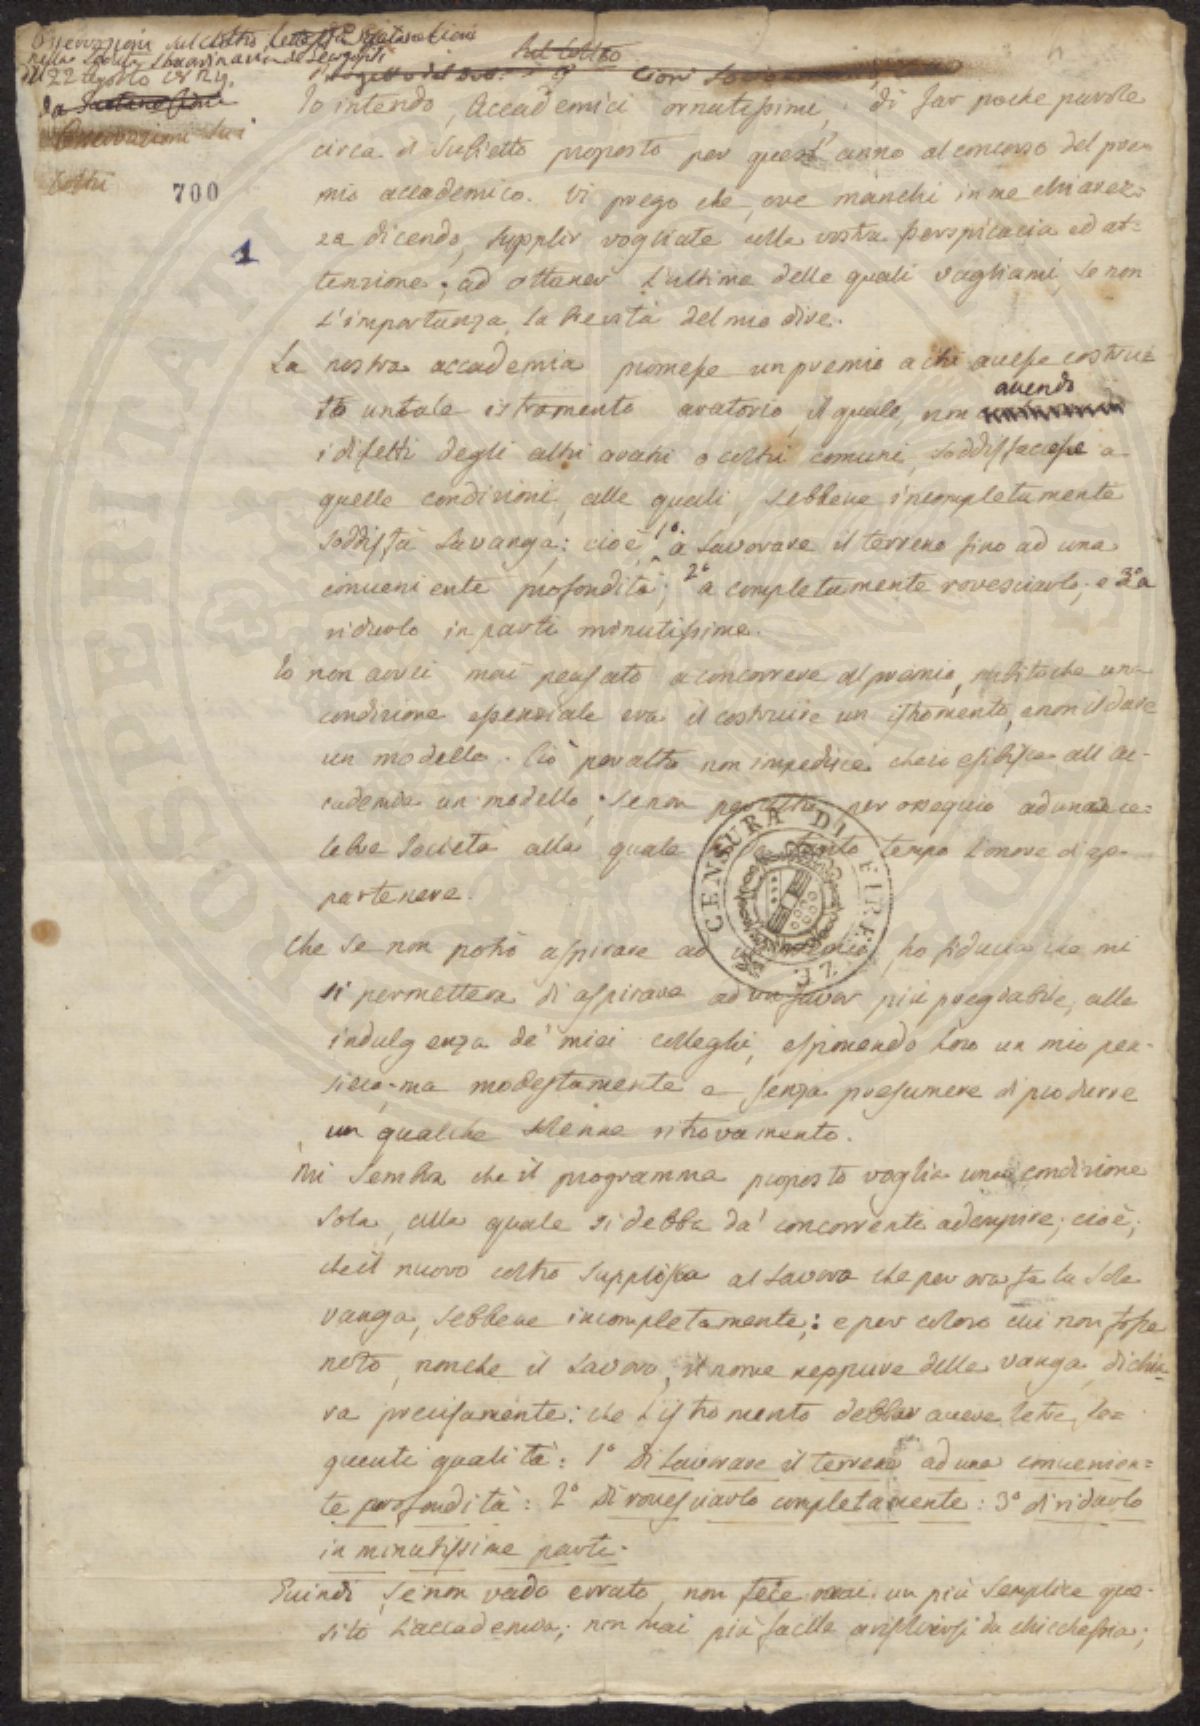 Osservazioni sul coltro lette da Gaetano Cioni
nella Seduta straordinaria de Georgofili
del 22 Agosto 1824.
Osservazioni sui
coltri
700
1
Sul Coltro
Io intendo, Accademici ornatissimi, di far poche parole
circa il Subietto proposto per quest'anno al concorso del pre-
mio accademico. Vi prego che, ove manchi in me chiarez-
za dicendo, supplir vogliate colla vostra perspicacia ed at-
tenzione; ad ottener l'ultima delle quali vagliami, se non
l'importanza, la brevità del mio dire.
La nostra accademia promesse un premio a chi avesse costrui-
to un tale istromento aratorio, il quale, non avendo
i difetti degli altri aratri o coltri comuni, soddisfacesse a
quelle condizioni, alle quali, sebbene incompletamente
soddisfà la vanga: cioè, 1o. a lavorare il terreno fino ad una
conveniente profondità; 2o a completamente rovesciarlo; e 3o a
ridurlo in parti minutissime.
Io non avrei mai pensato a concorrere al premio, subito che una
condizione essenziale era il costruire un istromento, e non il dare
un modello. Ciò per altro non impedisce che io esibisca all'ac-
cademia un modello, se non per altro per ossequio ad una ce-
lebre Società alla quale ho da tanto tempo l'onore di ap-
partenere.
Che se non potrò aspirare ad un premio, ho fiducia che mi
si permetterà di aspirare ad un favor più pregiabile, alla
indulgenza de' miei colleghi, esponendo loro un mio pen-
siero, ma modestamente e senza presumere di produrre
un qualche solenne ritrovamento.
Mi sembra che il programma proposto voglia una condizione
sola, alla quale si debba da' concorrenti adempire; cioè;
che il nuovo coltro supplisca al lavoro che per ora fa la sola
vanga, sebbene incompletamente: e per coloro cui non fosse
noto, nonche il lavoro, il nome neppure della vanga, dichia-
ra precisamente: che l'istromento debba avere le tre se-
guenti qualità: 1o Di lavorare il terreno ad una convenien-
te profondità: 2o Di rovesciarlo completamente: 3o di ridurlo
in minutissime parti.
Quindi, se non vado errato, non fece mai un più semplice que-
sito l'accademia; non mai più facile a risolversi da chicchessia;
CENSURA DI FIRENZE
PROSPERITATI